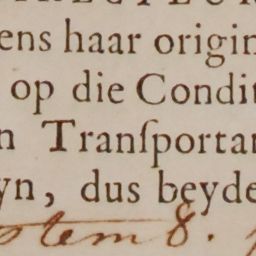 ens haar origin
op die Condit
n Tranſporta
yn, dus beyde
stem 8.